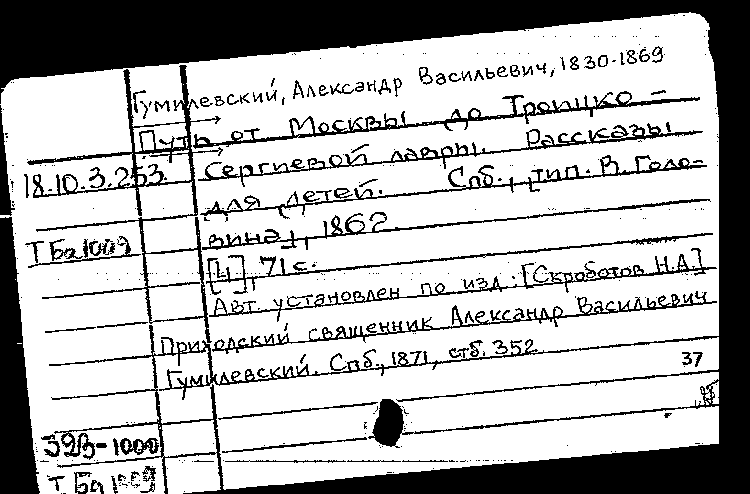 Гумилевский, Александр Васильевич, 1830-1869
Путь от Москвы до Троицко-
18.10.3.253 Сергиевой лавры. Рассказы
для детей. Спб., [тип. В. Голо-
Т Ба 1009 вина], 1862.
[4], 71 с.
Авт. установлен по изд.: [Скроботов Н.А.]
Приходский священник Александр Васильевич
Гумилевский. Спб., 1871, стб. 352
37
39В-1000
Т Ба 1009